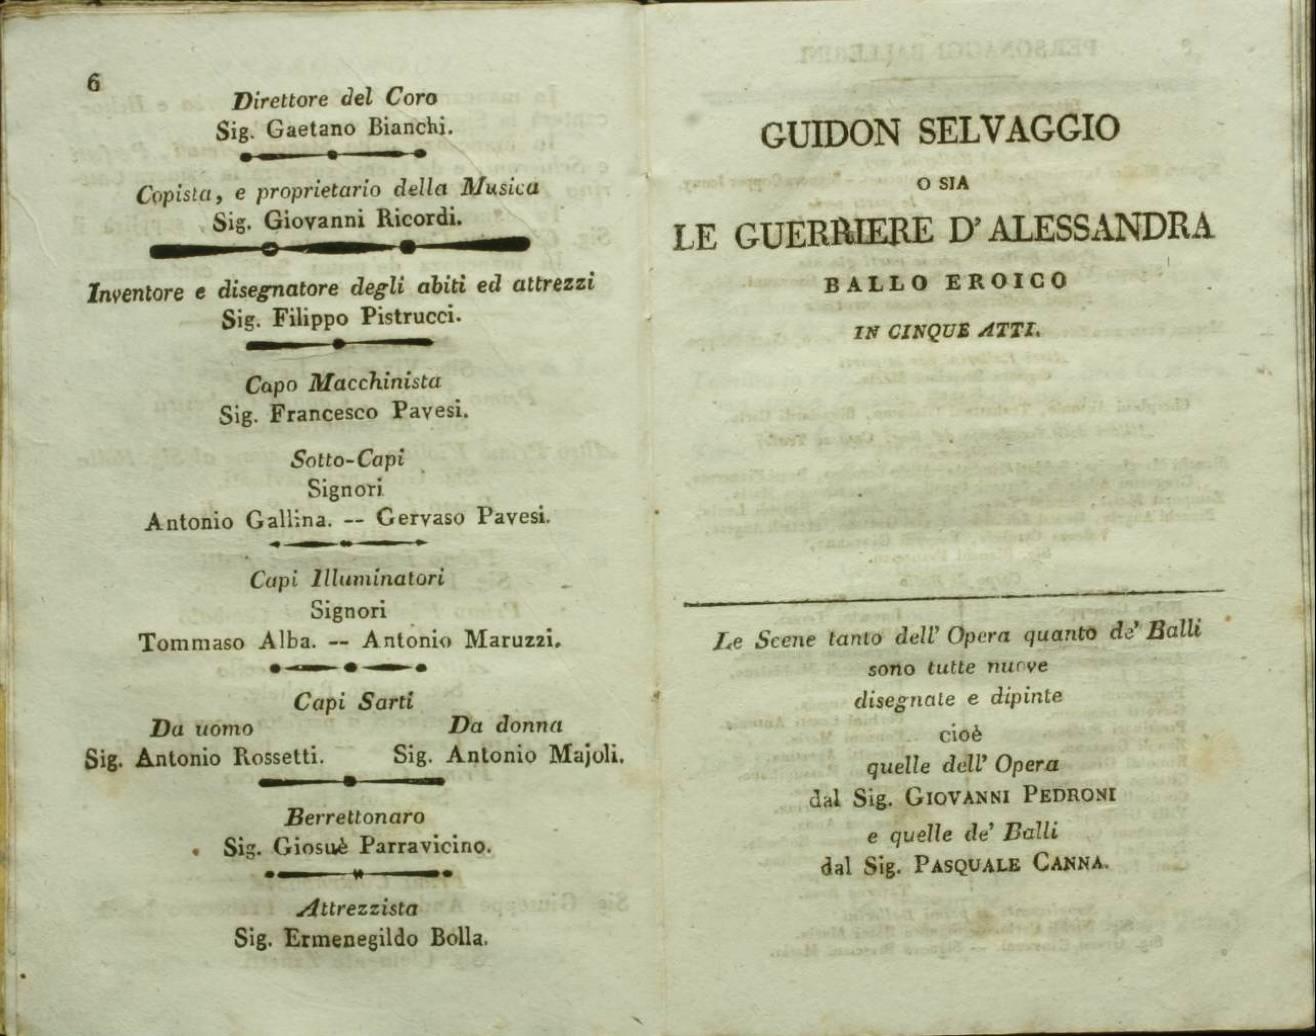 6
Direttore del Coro
Sig. Gaetano Bianchi.
Copista, e proprietario della Musica
Sig. Giovanni Ricordi.
Inventore e disegnatore degli abiti ed attrezzi
Sig. Filippo Pistrucci.
Capo Macchinista
Sig. Francesco Pavesi.
Sotto-Capi
Signori
Antonio Gallina. -- Gervaso Pavesi.
Capi Illuminatori
Signori
Tommaso Alba. -- Antonio Maruzzi.
Capi Sarti
Da uomo Da donna
Sig. Antonio Rossetti. Sig. Antonio Majoli.
Berrettonaro
Sig. Giosuè Parravicino.
Attrezzista
Sig. Ermenegildo Bolla.
GUIDON SELVAGGIO
O SIA
LE GUERRIERE D' ALESSANDRA
BALLO EROICO
IN CINQUE ATTI.
Le Scene tanto dell' Opera quanto de' Balli
sono tutte nuove
disegnate e dipinte
cioè
quelle dell' Opera
dal Sig. GIOVANNI PEDRONI
e quelle de' Balli
dal Sig. PASQUALE CANNA.